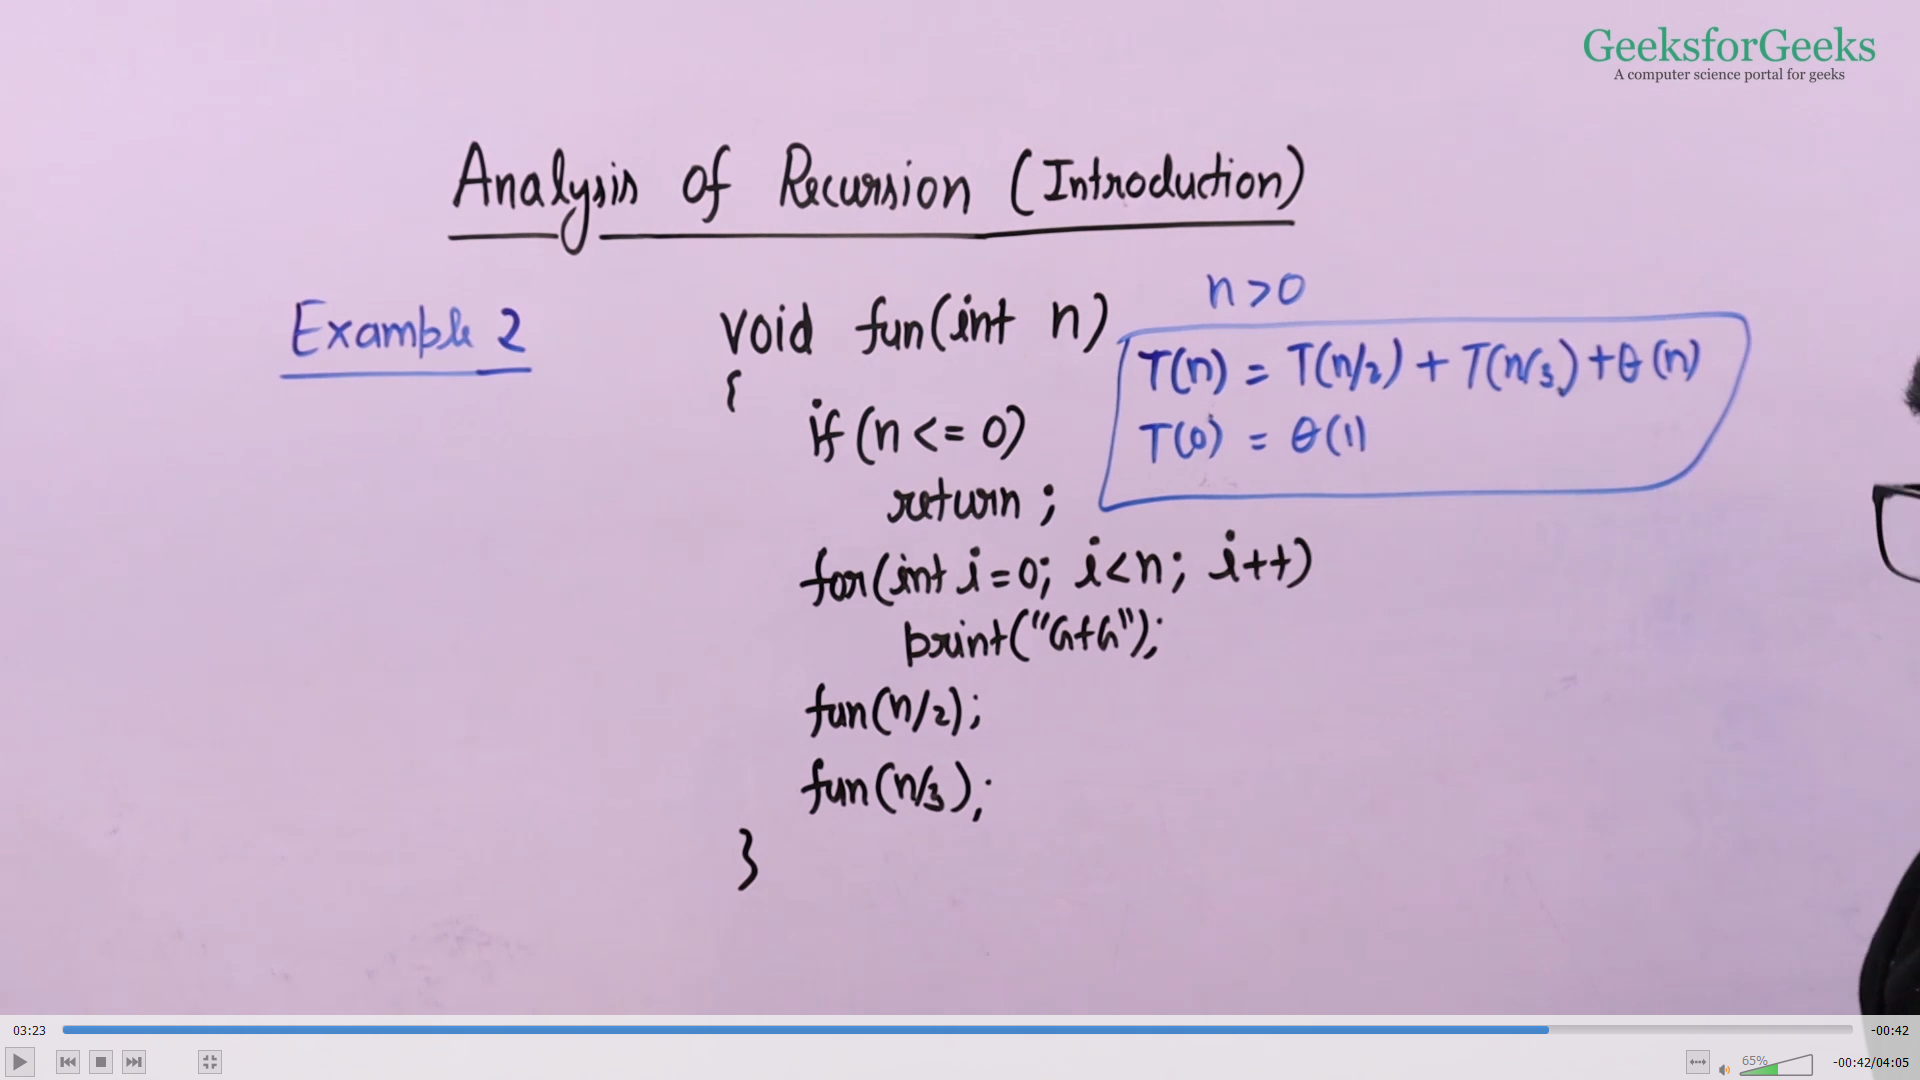 GeeksforGeeks
A computer science portal for geeks
Analysis of Recursion (Introduction)
Example 2
n>0
void fun(int n)
T(n) = T(n/2) + T(n/3) + θ(n)
{
if(n <= 0)
T(0) = θ(1)
return ;
for(int i=0; i<n; i++)
print("GfG");
fun(n/2);
fun(n/3);
}
03:23
-00:42
65%
-00:42/04:05